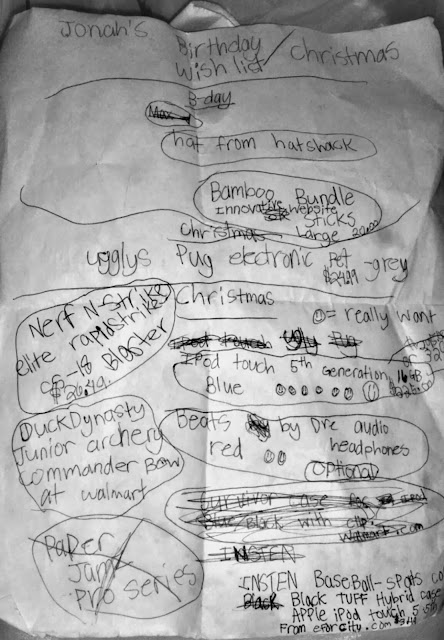 Jonah's Birthday / Christmas
Wish list
B-day
hat from hatshack
Bamboo Bundle
Innovative website
Sticks
Christmas Large 20.00
ugglys Pug electronic Pet -grey
$24.99
Christmas
☺= really want
Nerf N-Strike
elite rapidstrike
CS-18 Blaster
$26.49
Ipod touch Ugly Pug
IPod touch 5th Generation
Blue
16 GB
Beats by Dre audio
red headphones
Optional
DuckDynasty
Junior archery
Commander Bow
at walmart
Survivor case for ipod
Blue Black with clip
Walmart.com
Paper
Jamz
Pro series
INSTEN
INSTEN BaseBall-Spots
Black Black TUFF Hybrid case
APPle iPod touch 5
From eforcity.com